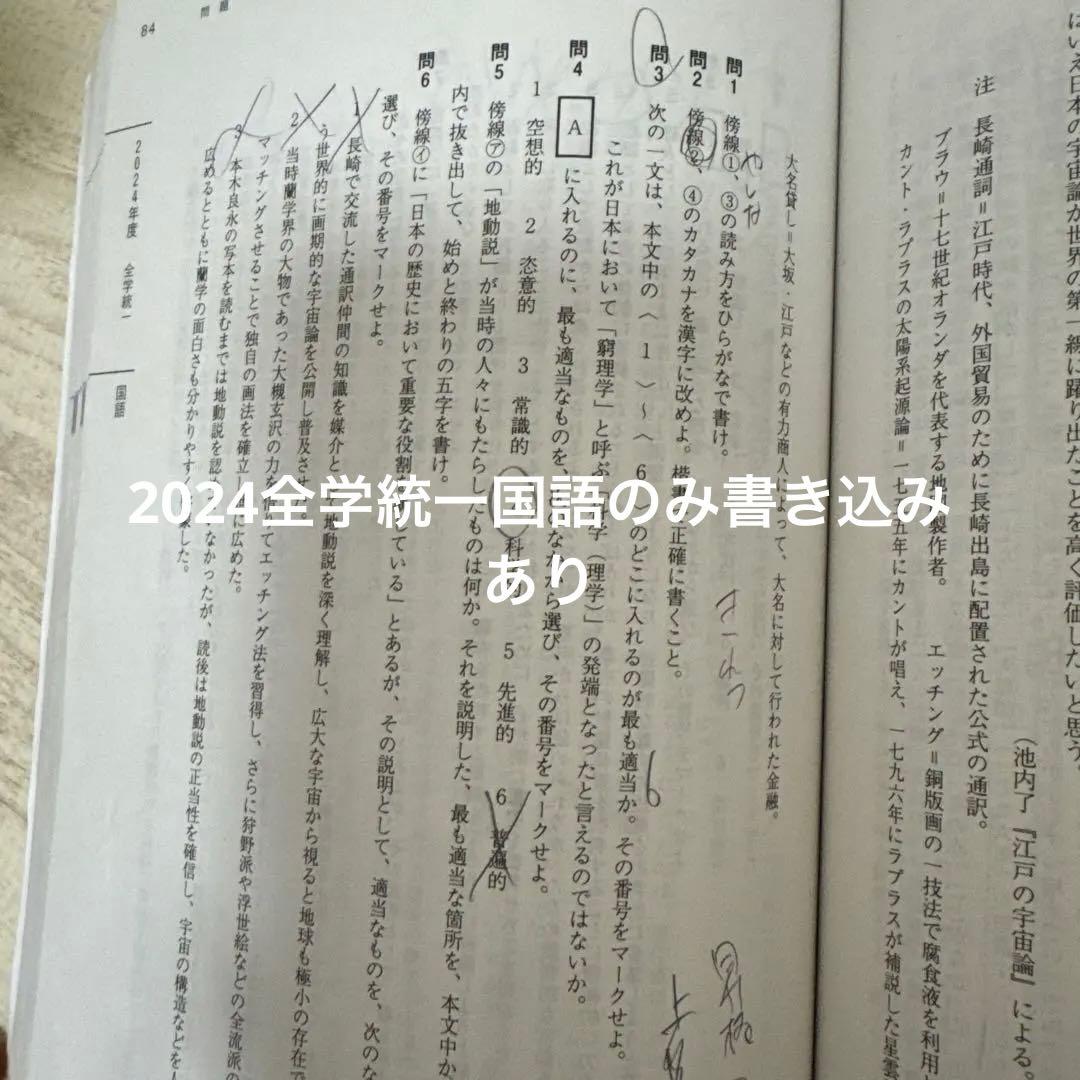 はいえ日本の宇宙論が世界の第一線に躍り出たことを高く評価したいと思う
(池内了『江戸の宇宙論』による。
注 長崎通詞=江戸時代、外国貿易のために長崎出島に配置された公式の通訳。
ブラウ=十七世紀オランダを代表する地 製作者。 エッチング=銅版画の一技法で腐食液を利用
カント・ラプラスの太陽系起源論=一七 五年にカントが唱え、一七九六年にラプラスが補説した星雲
大名貸し=大坂・江戸などの有力商人 よって、大名に対して行われた金融。
問1 傍線①、③の読み方をひらがなで書け。
やしな
問2 傍線②、④のカタカナを漢字に改めよ。楷書 正確に書くこと。
問3 次の一文は、本文中の〈 1 〉~〈 6 〉のどこに入れるのが最も適当か。その番号をマークせよ。
6
これが日本において「窮理学」と呼ぶ 学(理学)」の発端となったと言えるのではないか。
問4 A に入れるのに、最も適当なものを、 のなかから選び、その番号をマークせよ。
1 空想的 2 恣意的 3 常識的 科 5 先進的 6 普遍的
問5 傍線㋐の「地動説」が当時の人々にもたらしたものは何か。それを説明した、最も適当な箇所を、本文中か
内で抜き出して、始めと終わりの五字を書け。
問6 傍線㋑に「日本の歴史において重要な役割 ている」とあるが、その説明として、適当なものを、次のな
選び、その番号をマークせよ。
1 長崎で交流した通訳仲間の知識を媒介と 地動説を深く理解し、広大な宇宙から視ると地球も極小の存在で
う世界的に画期的な宇宙論を公開し普及させ
2 当時蘭学界の大物であった大槻玄沢の力を てエッチング法を習得し、さらに狩野派や浮世絵などの全流派の
マッチングさせることで独自の画法を確立 に広めた。
3 本木良永の写本を読むまでは地動説を認 なかったが、読後は地動説の正当性を確信し、宇宙の構造などを
広めるとともに蘭学の面白さも分かりやすく した。
84
問題
2024年度 全学統一
国語
2024全学統一国語のみ書き込み
あり